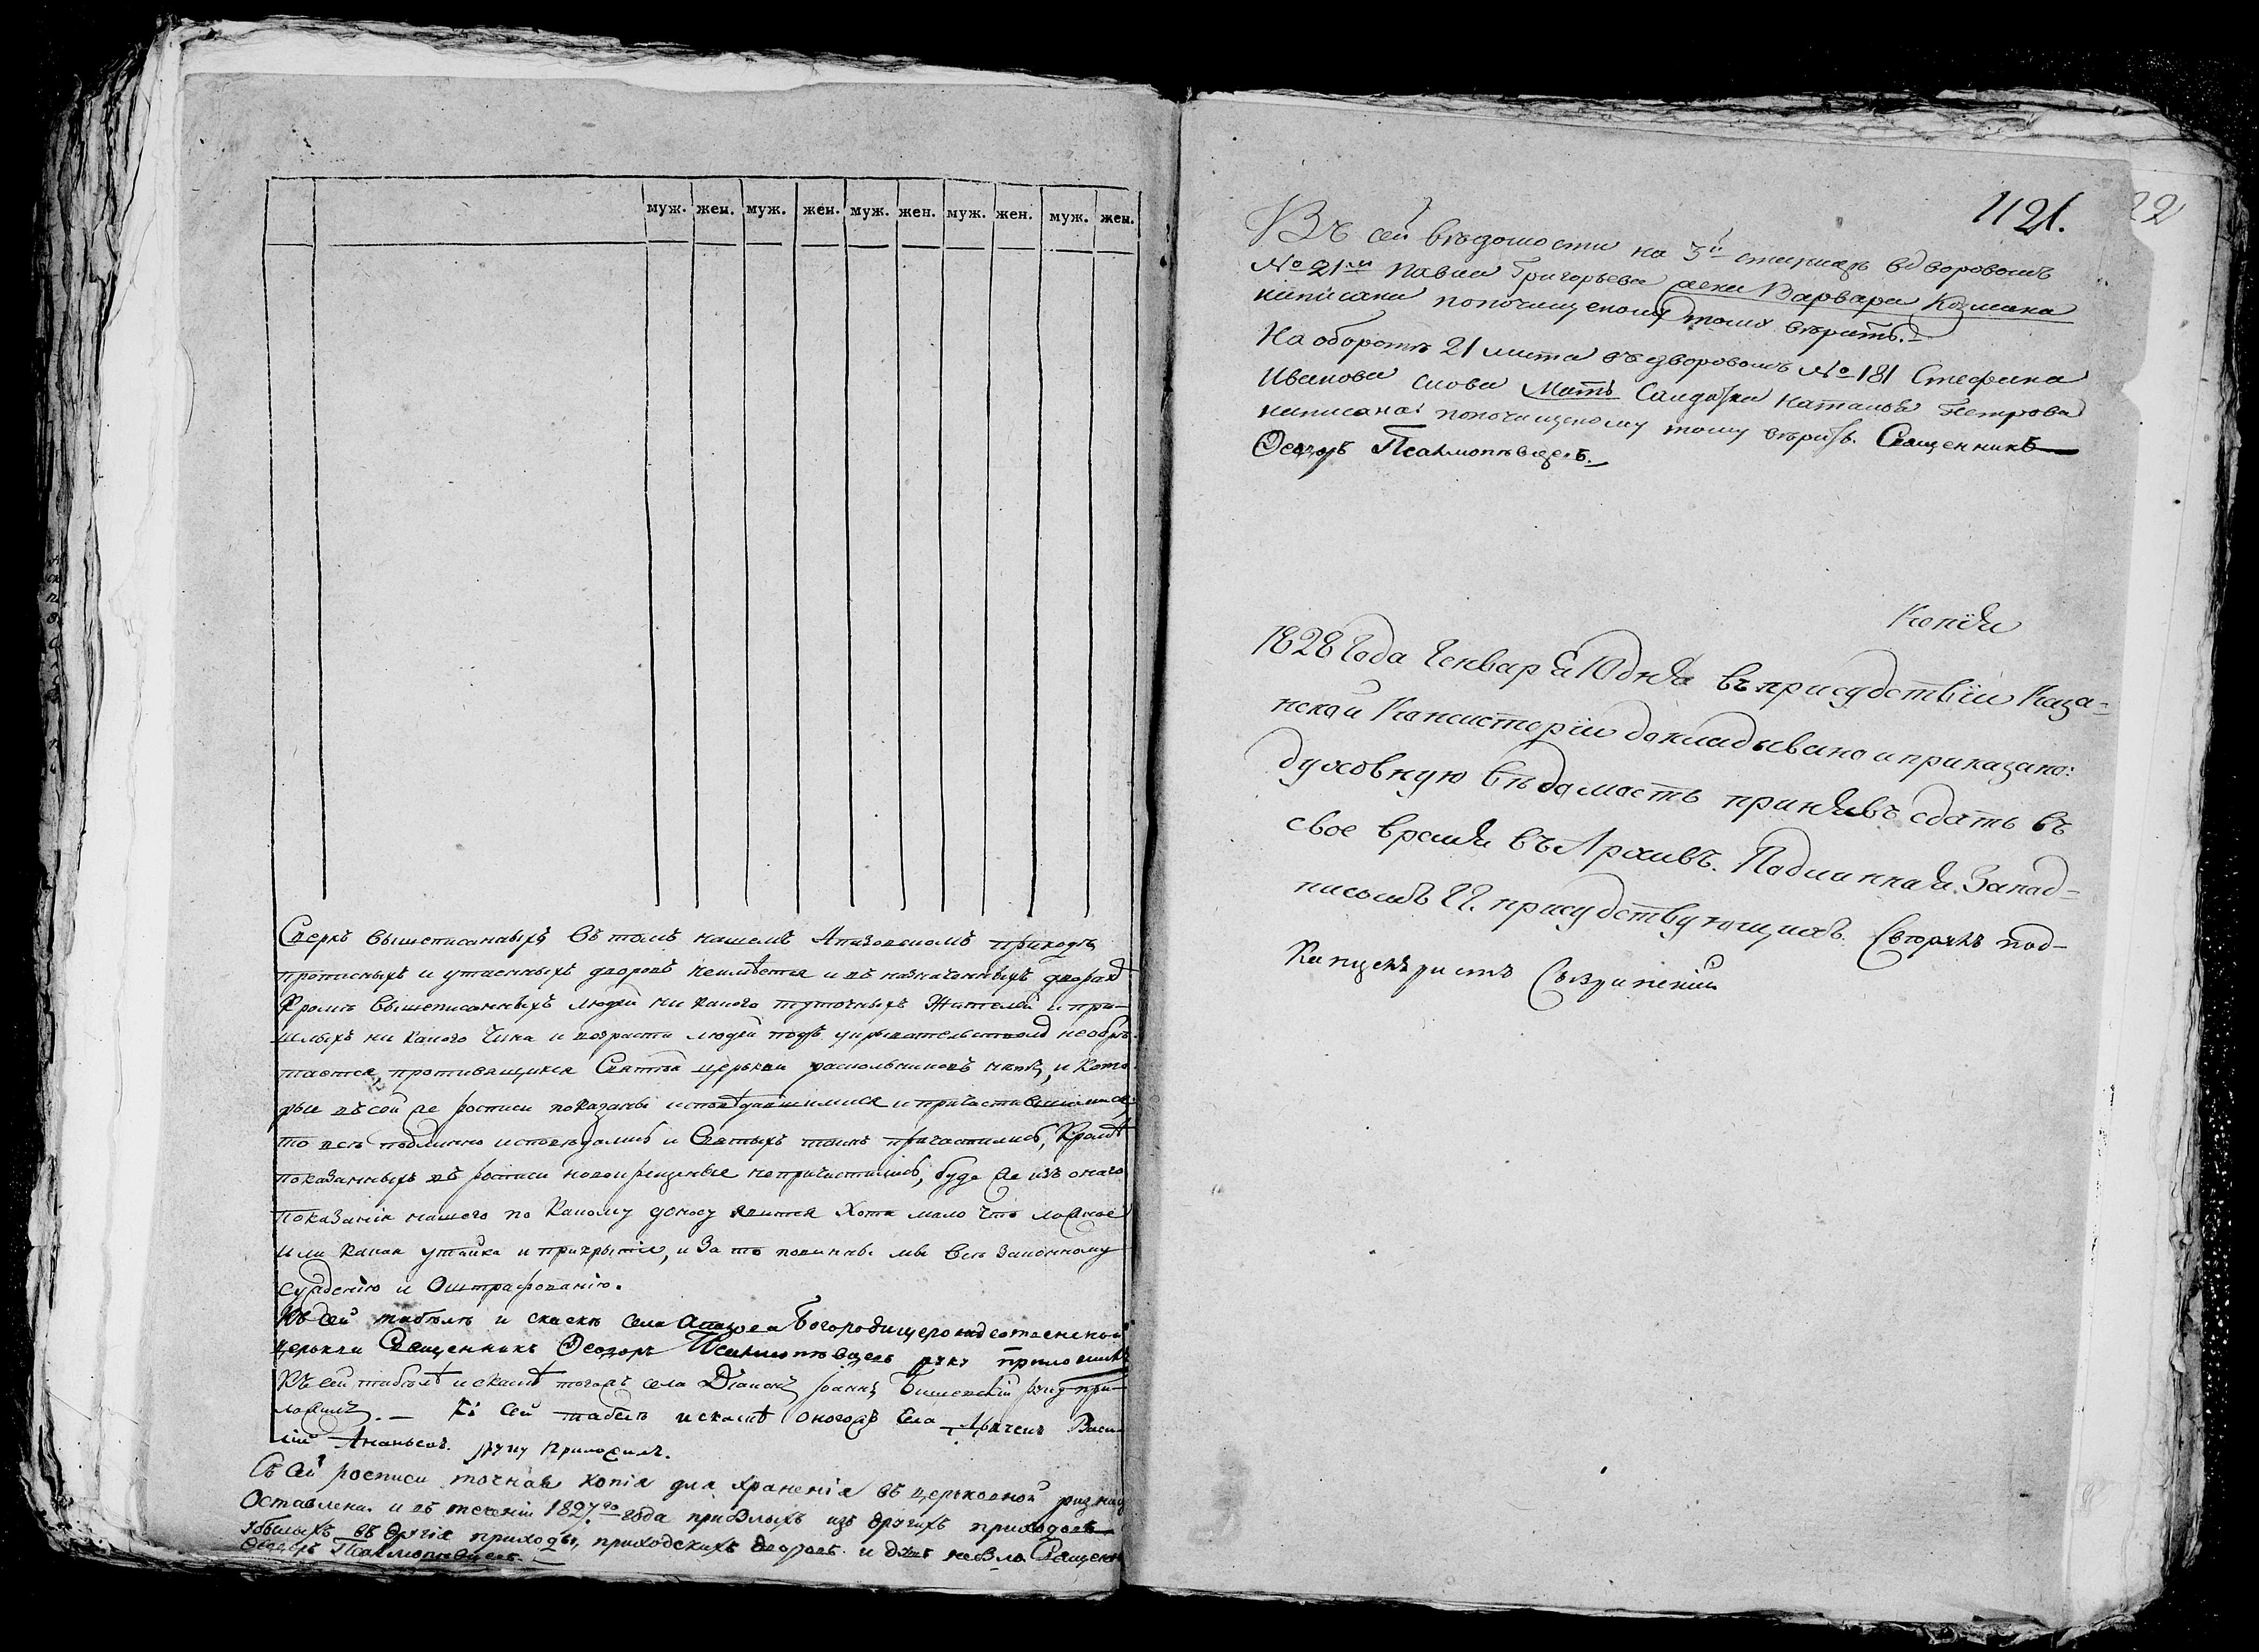 муж. жен. муж. жен. муж. жен. муж. жен. муж. жен.
Сверхъ вышеписанныхъ въ томъ нашемъ Апазовскомъ приходѣ
прописныхъ и утаенныхъ дворовъ неимѣется и въ назначенныхъ дворахъ
кромѣ вышеписанныхъ людей ни какого туточныхъ жителей и при-
шлыхъ ни какого чина и возраста людей подъ укрывательствомъ необрѣ-
тается, противящихся Святой церькви раскольниковъ нѣтъ, и кото-
рые въ сей же росписи показаны исповѣдавшимися и причастившимися,
то всѣ подлинно исповѣдались и Святыхъ таинъ причастились, кромѣ
показанныхъ въ росписи новокрещеные непричастились, буде же изъ онаго
показанія нашего по какому доносу явится хотя мало что ложное
или какая утайка и прикрытіе, и за то повинны мы всѣ законному
сужденію и оштрафованію.
Къ сей табели и сказкѣ села Апазова Богородицерождественской
церькви Священникъ Ѳеодоръ Псалмопѣвцевъ руку приложилъ
Къ сей табелѣ и сказкѣ тогожъ села Діаконъ Іоаннъ руку при-
ложилъ. — Къ сей табелѣ и сказкѣ оногожъ села Дьячекъ Васи-
лій Ананьевъ руку приложилъ.
Съ сей росписи точная копія для храненія въ церьковной ризницѣ
оставлена. и въ теченіи 1827го года прибылыхъ изъ другихъ приходовъ
убылыхъ въ другія приходы, приходскихъ дворовъ и душъ небыло Священн
Ѳеодоръ Псалмопѣвцевъ.
1121. 22
Въ сей вѣдомости на 3й страницѣ въ дворовомъ
№ 21м Павла Григорьева жена Варвара Козмина
написана попочищеному тому вѣрить.
На оборотѣ 21 листа въ дворовомъ № 181 Стефана
Иванова слова Мать Салдатка Наталья Петрова
написана попочищеному тому вѣрить. Священникъ
Ѳеодоръ Псалмопѣвцевъ.
Копія
1828 Года Генваря 10 дня въ присудствіи Каза-
нской Консисторіи докладывано и приказано:
духовную вѣдомость принявъ сдать въ
свое время въ Архивъ. Подлинная За под-
писомъ ГГ. присудствующихъ. Сверялъ под-
Канцеляристъ